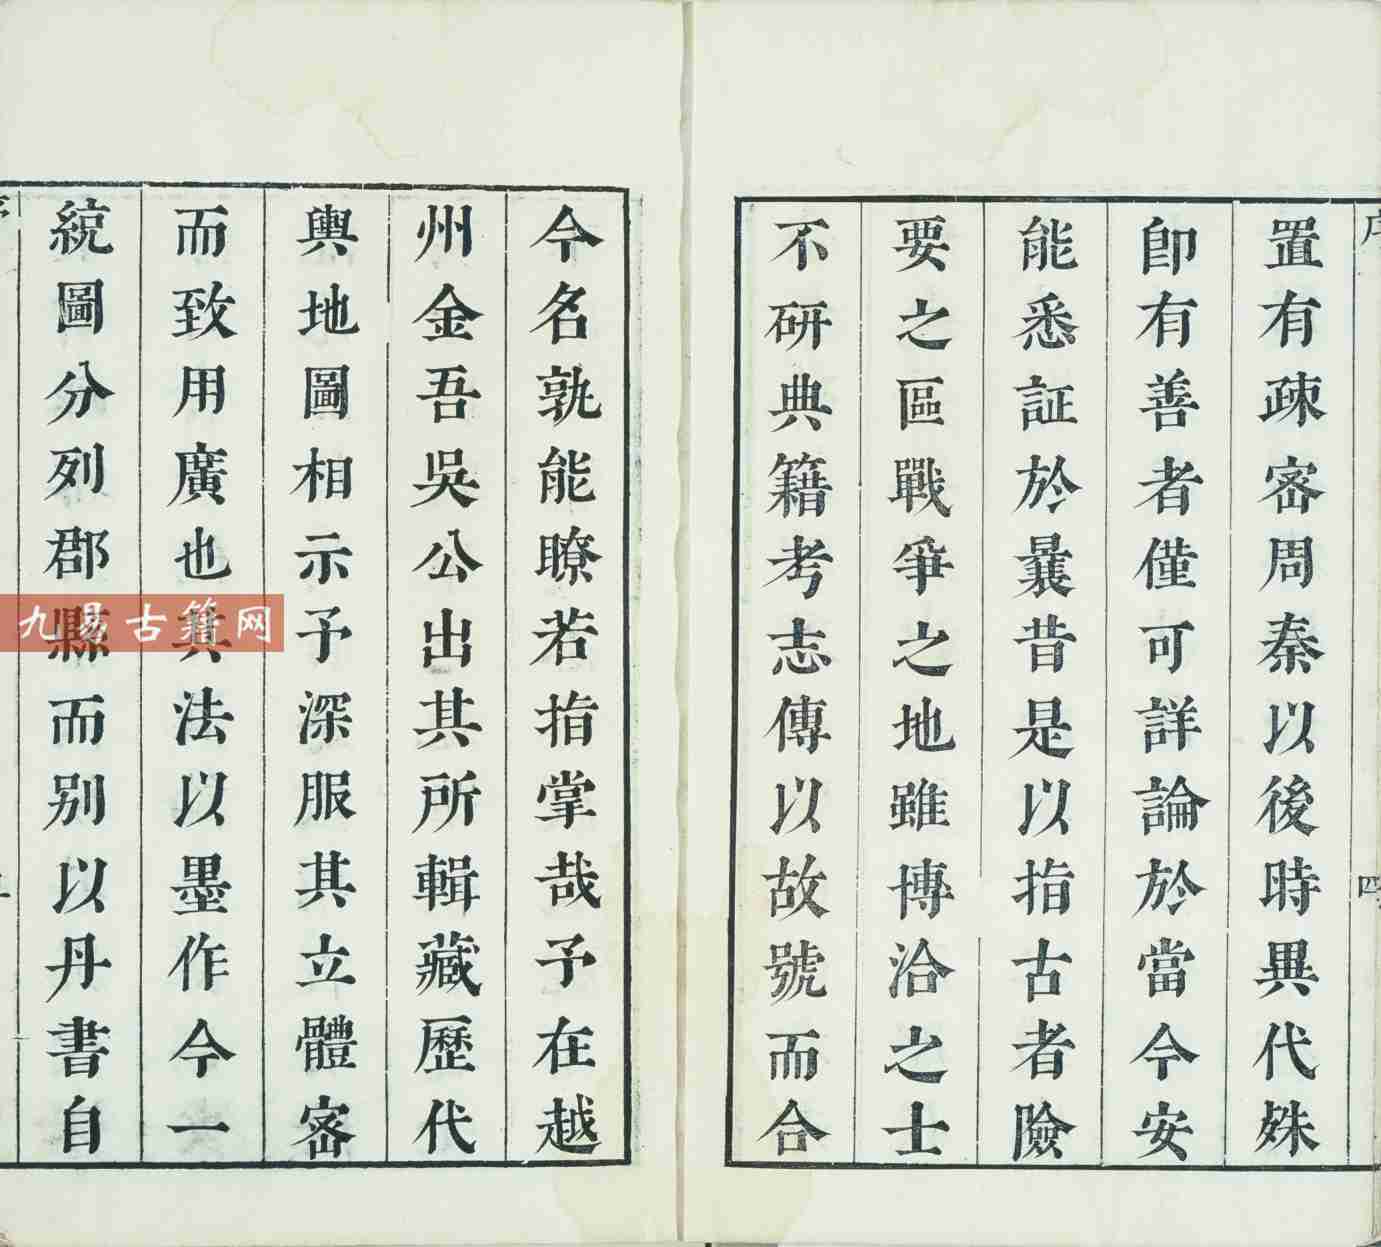 序
四
置有疎宻周秦以後時異代殊
卽有善者僅可詳論於當今安
能悉証於曩昔是以指古者險
要之區戰爭之地雖博洽之士
不研典籍考志傳以故號而合
今名孰能瞭若指掌哉予在越
州金吾吳公出其所輯藏歷代
輿地圖相示予深服其立體宻
而致用廣也其法以墨作今一
統圖分列郡縣而别以丹書自
九易古籍网